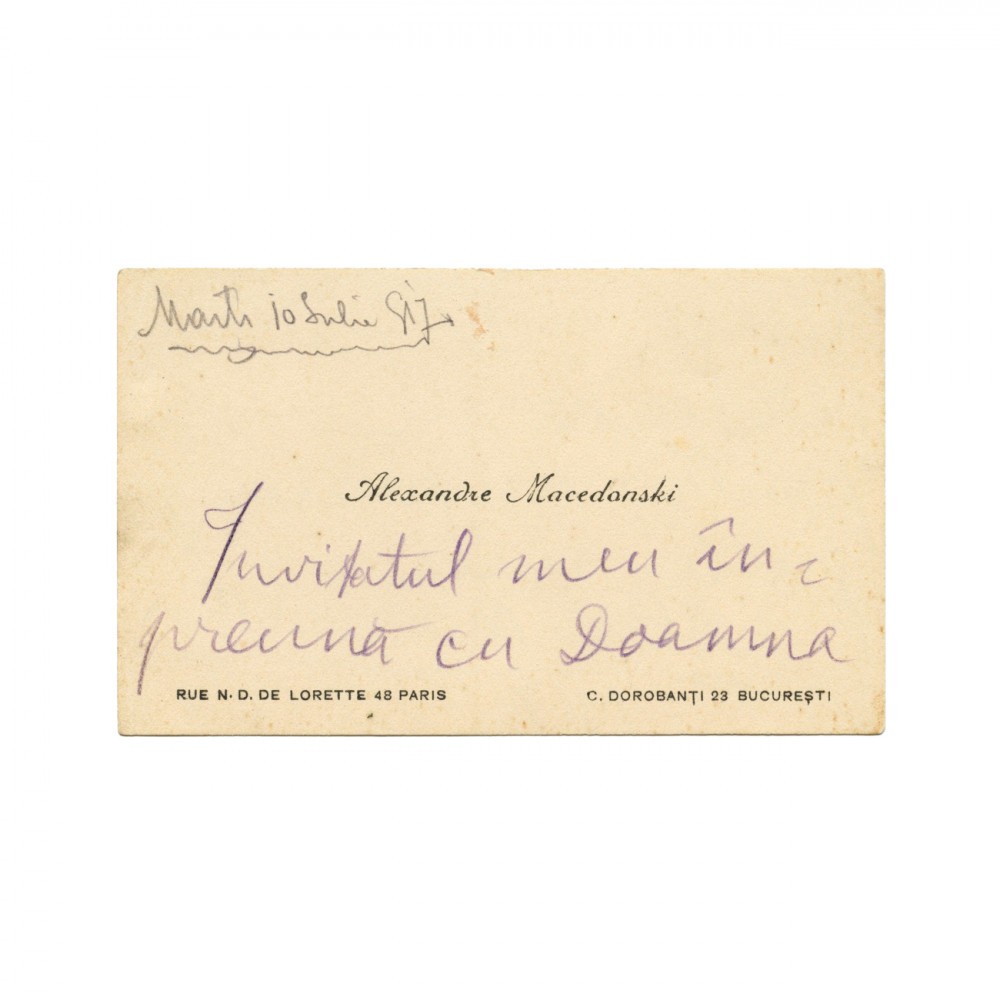 Marti 10 Iulie 917
Alexandre Macedonski
Invitatul meu în-
preună cu Doamna
RUE N. D. DE LORETTE 48 PARIS
C. DOROBANȚI 23 BUCUREȘTI